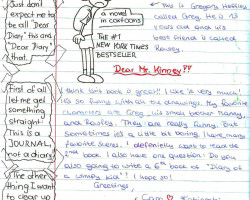 Just don't
expect me to
be all "Dear
Diary" this and
"Dear Diary"
that.
a novel
in cartoons
THE #1
NEW YORK TIMES
BESTSELLER
This is Gregory Heffley
called Greg. He is 13
years old and his
best friend is called
Rowley.
Dear Mr. Kinney
First of all
let me get
something
straight:
This is a
JOURNAL,
not a diary.
The other
thing I want
to clear up
I think this book is great!! I like it very much!
it's so funny with all the drawings. My favorite
characters are Greg, his small brother Manny,
and Rowley. They are really funny. But
sometimes it's a little bit boring. I have many
favorite scenes. I definitely want to read the
2nd book. I also have one question: Do you
also going to write a 6th book of "Diary of
a wimpy kid"? I hope so!
Greetings,